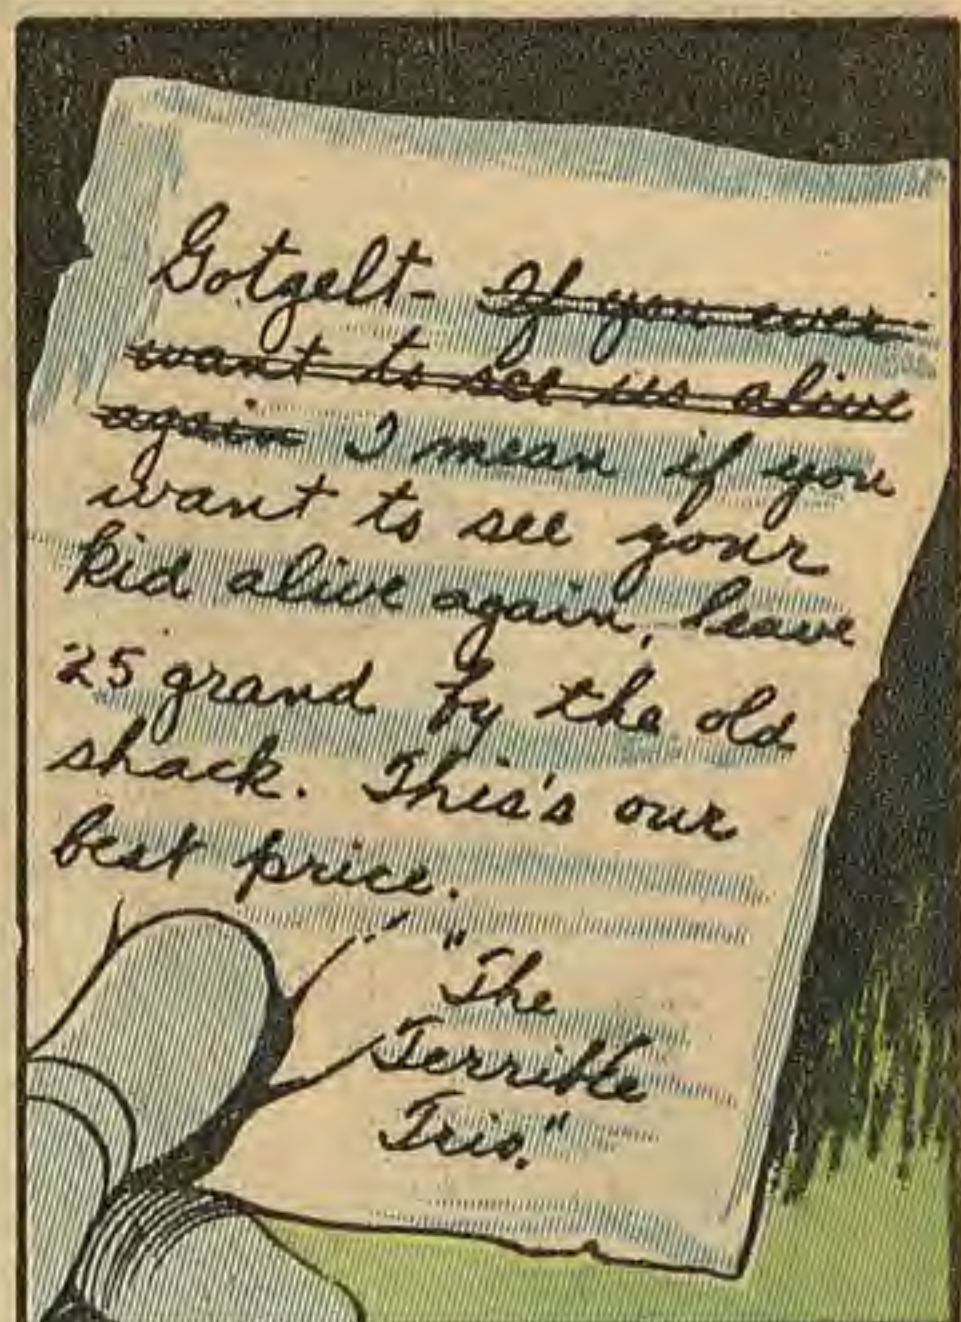 Gotgelt- If you ever
want to see us alive
again I mean if you
want to see your
kid alive again, leave
25 grand by the old
shack. This's our
best price.
"The
Terrible
Trio."